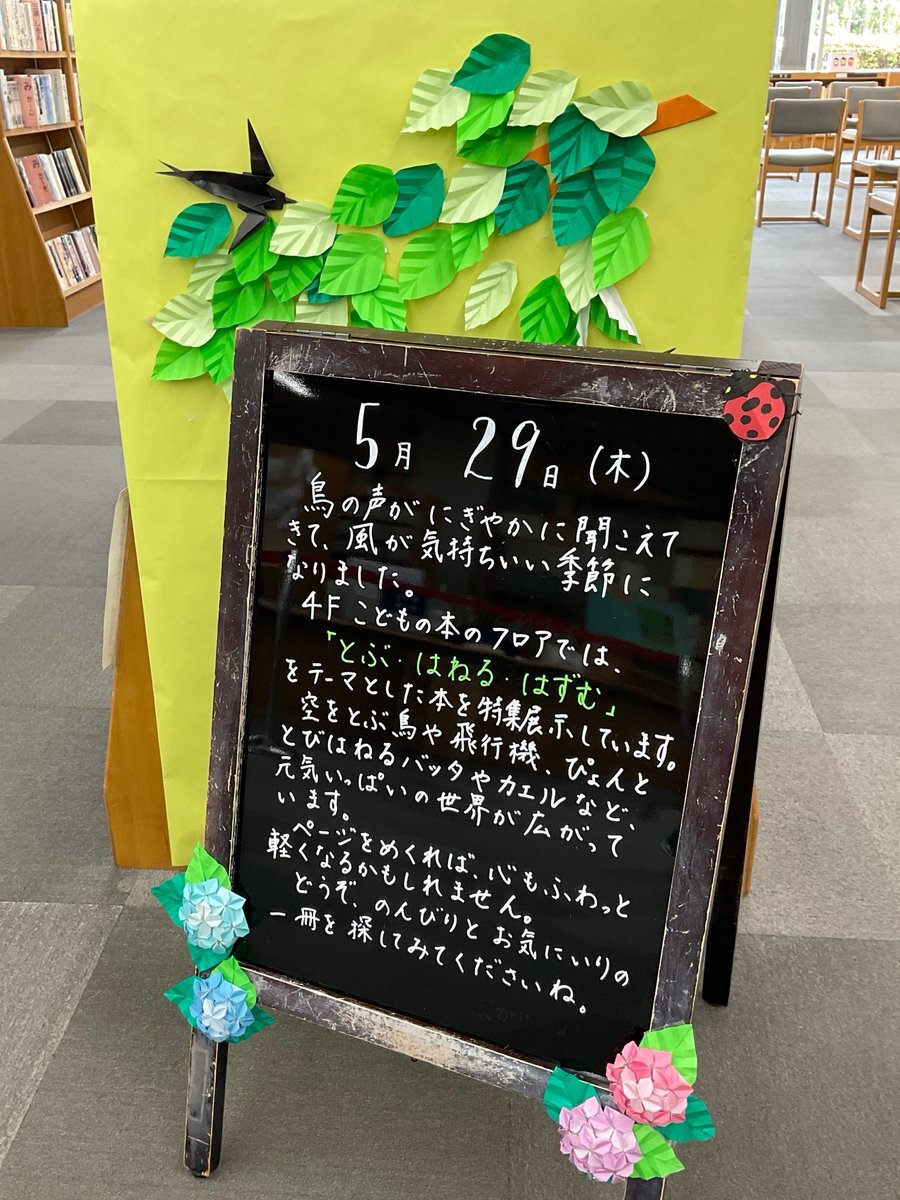 5月 29日 (木)
鳥の声がにぎやかに聞こえて
きて、風が気持ちいい季節に
なりました。
4F こどもの本のフロアでは、
「とぶ・はねる・はずむ」
をテーマとした本を特集展示しています。
空をとぶ鳥や飛行機、ぴょんと
とびはねるバッタやカエルなど、
元気いっぱいの世界が広がって
います。
ページをめくれば、心もふわっと
軽くなるかもしれません。
どうぞ、のんびりとお気にいりの
一冊を探してみてくださいね。